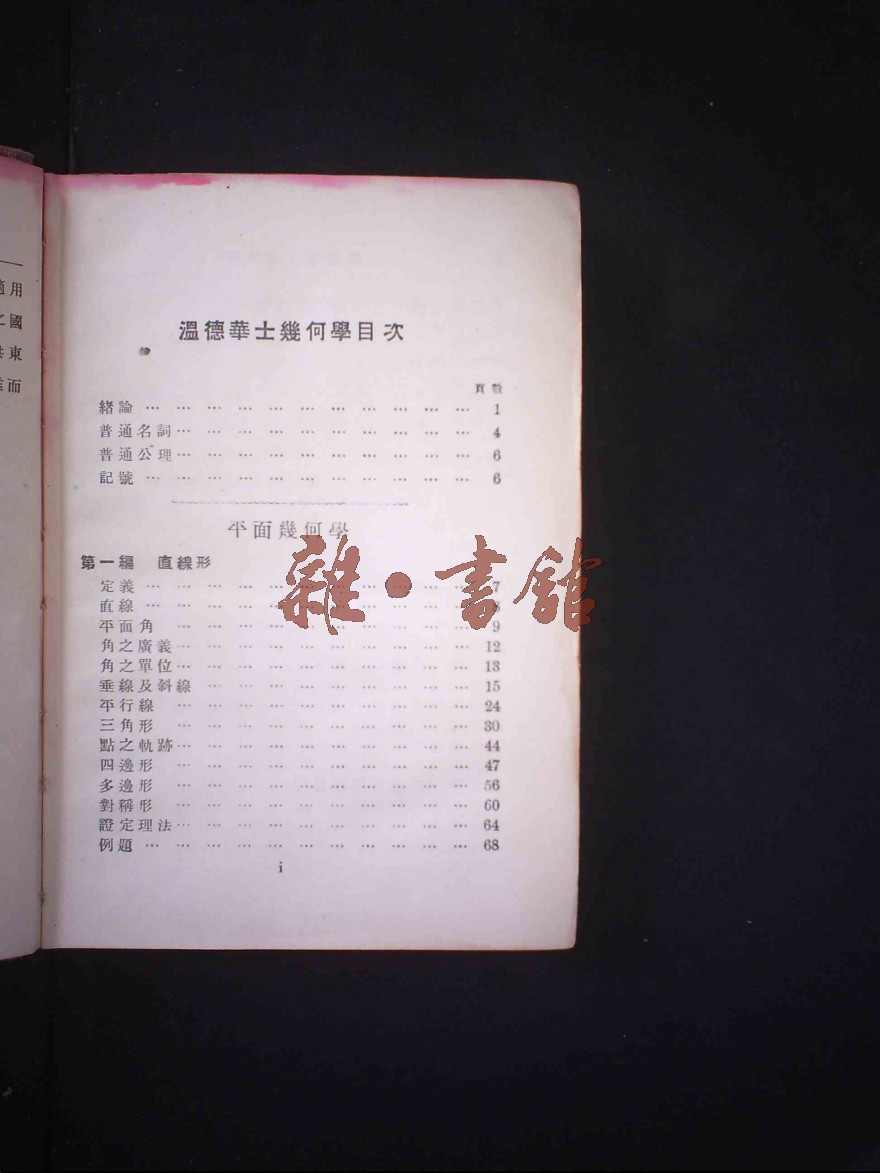 溫德華士幾何學目次
頁數
緒論 … … … … … … … … … … … 1
普通名詞 … … … … … … … … … … 4
普通公理 … … … … … … … … … … 6
記號 … … … … … … … … … … … 6
平面幾何學
第一編 直線形
定義 … … … … … … … … … … … 7
直線 … … … … … … … … … … … 8
平面角 … … … … … … … … … … 9
角之廣義 … … … … … … … … … … 12
角之單位 … … … … … … … … … … 13
垂線及斜線 … … … … … … … … … 15
平行線 … … … … … … … … … … 24
三角形 … … … … … … … … … … 30
點之軌跡 … … … … … … … … … … 44
四邊形 … … … … … … … … … … 47
多邊形 … … … … … … … … … … 56
對稱形 … … … … … … … … … … 60
證定理法 … … … … … … … … … … 64
例題 … … … … … … … … … … … 68
i
雜·書館
用
國
東
而